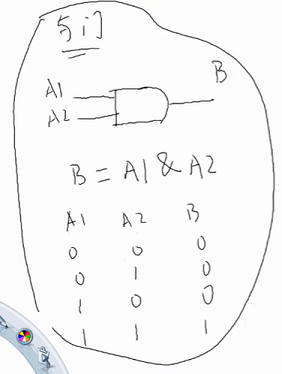 与门
A1
B
A2
B = A1 & A2
A1 A2 B
0 0 0
0 1 0
1 0 0
1 1 1